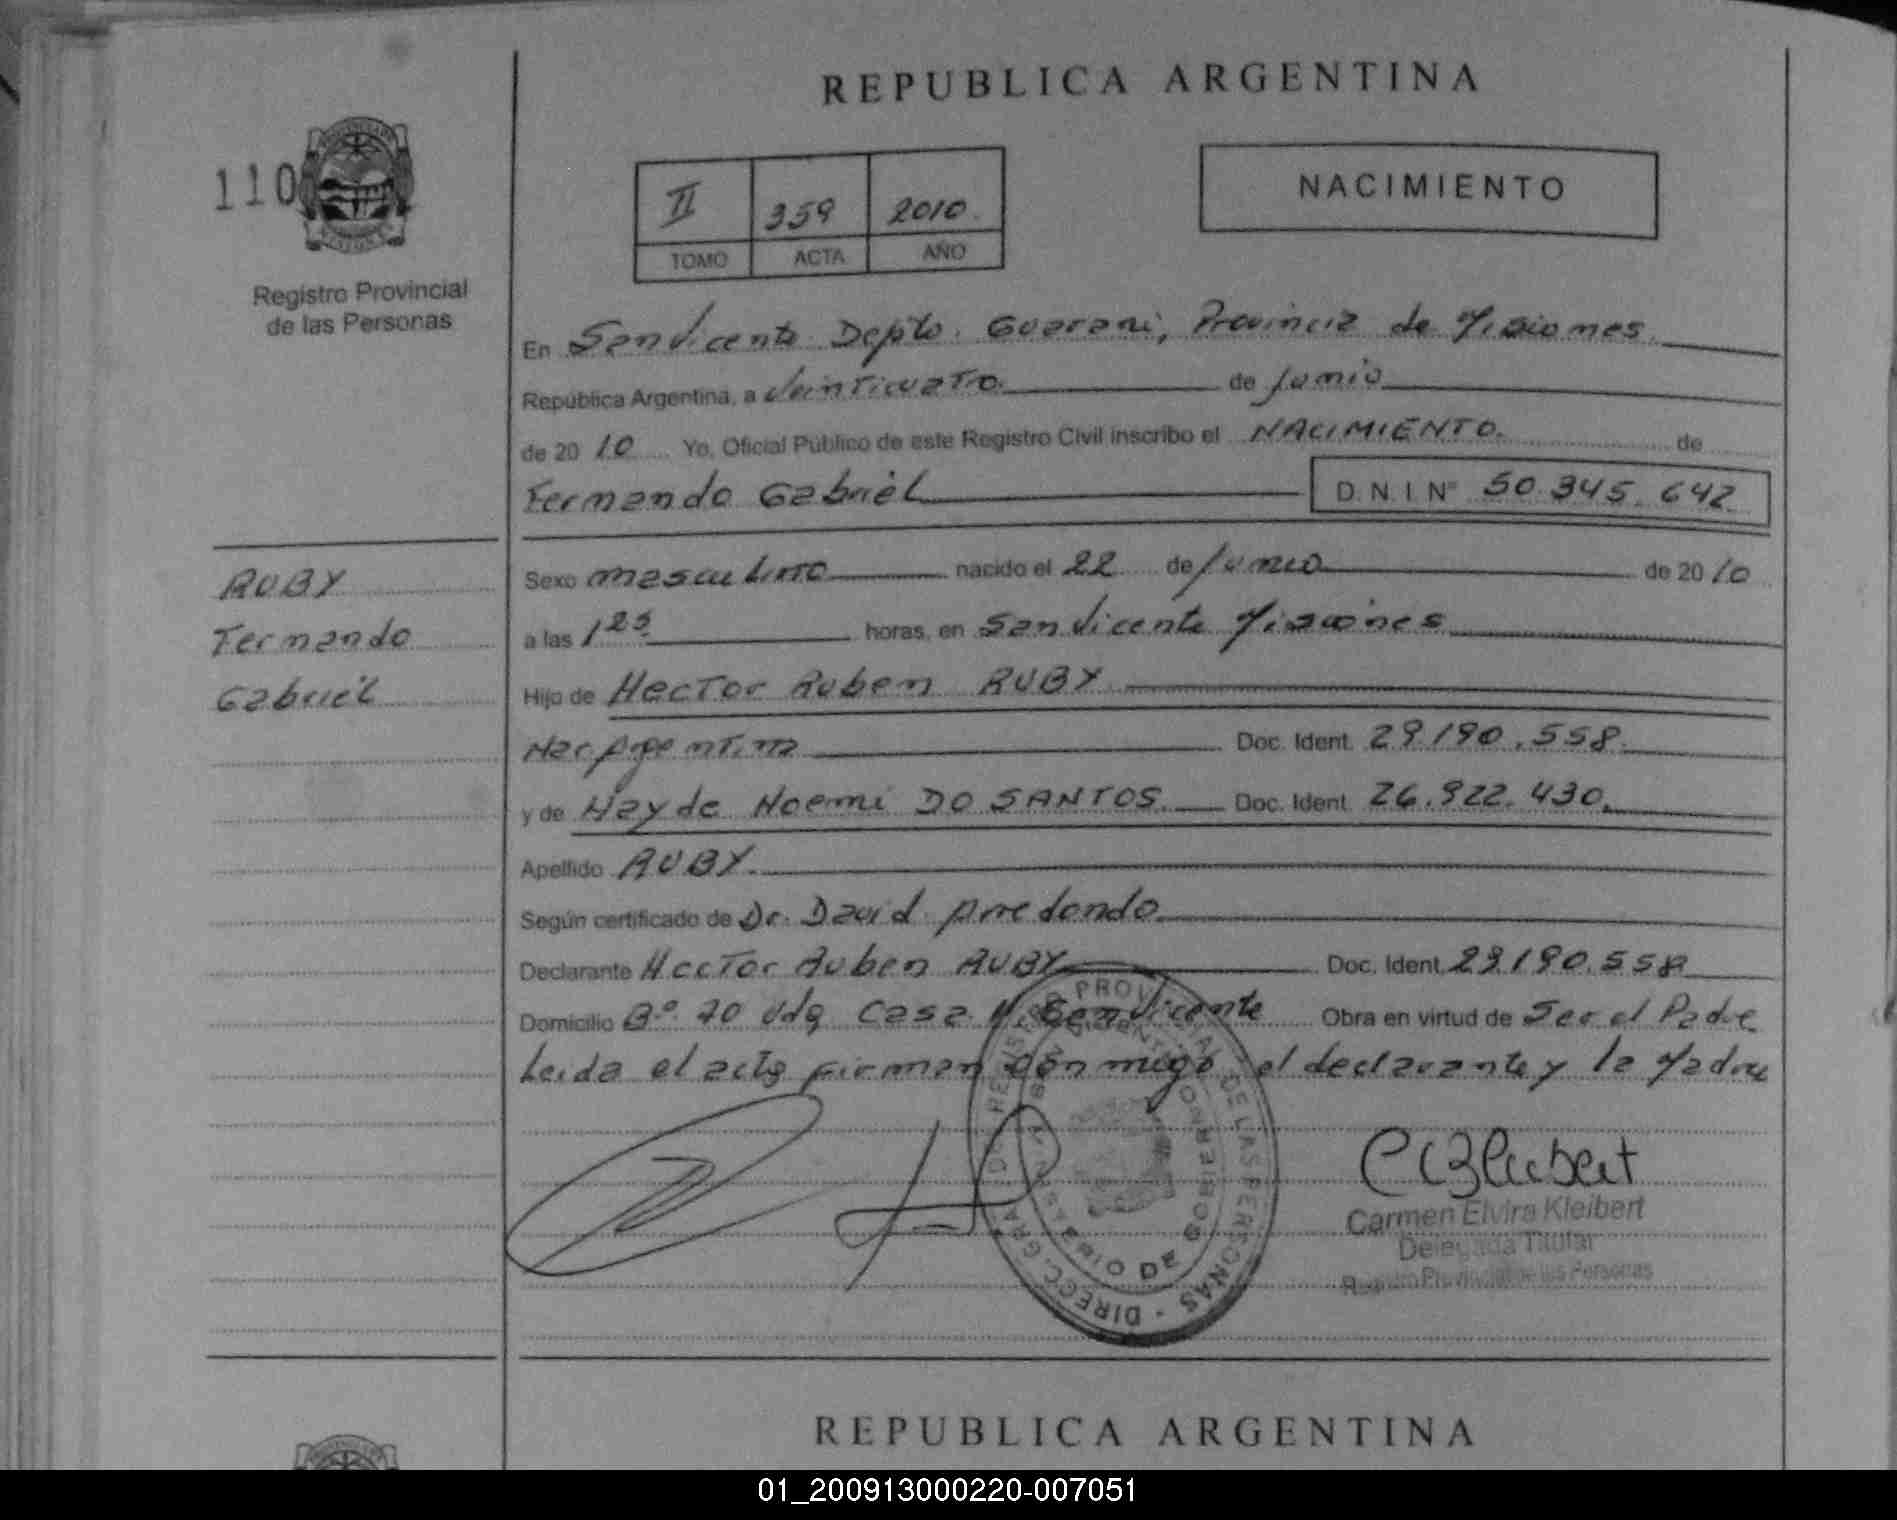 REPUBLICA ARGENTINA
110
II 359 2010
TOMO ACTA AÑO
NACIMIENTO
Registro Provincial
de las Personas
En San Vicente Depto. Guarani, Provincia de Misiones
República Argentina, a Veinticuatro de Junio
de 2010 Yo, Oficial Público de este Registro Civil inscribo el NACIMIENTO. de
Fernando Gabriel D.N.I. Nº 50.345.642
RUBY
Fernando
Gabriel
Sexo masculino nacido el 22 de Junio de 2010
a las 1 25 horas, en San Vicente Misiones
Hijo de Hector Ruben RUBY
Nac. Argentina Doc. Ident. 29.190.558
y de Hayde Noemi DO SANTOS. Doc. Ident. 26.922.430.
Apellido RUBY.
Según certificado de Dr. David Arredondo
Declarante Hector Ruben RUBY Doc. Ident. 29.190.558
Domicilio Bº. 70 Vdas Casa San Vicente Obra en virtud de Ser el Padre
Leida el acta firman conmigo el declarante y la Madre
Carmen Elvira Kleibert
Delegada Titular
Registro Provincial de las Personas
DE LAS PERSONAS - DIRECC. GRAL.
DE GOBIERNO
REPUBLICA ARGENTINA
01_200913000220-007051